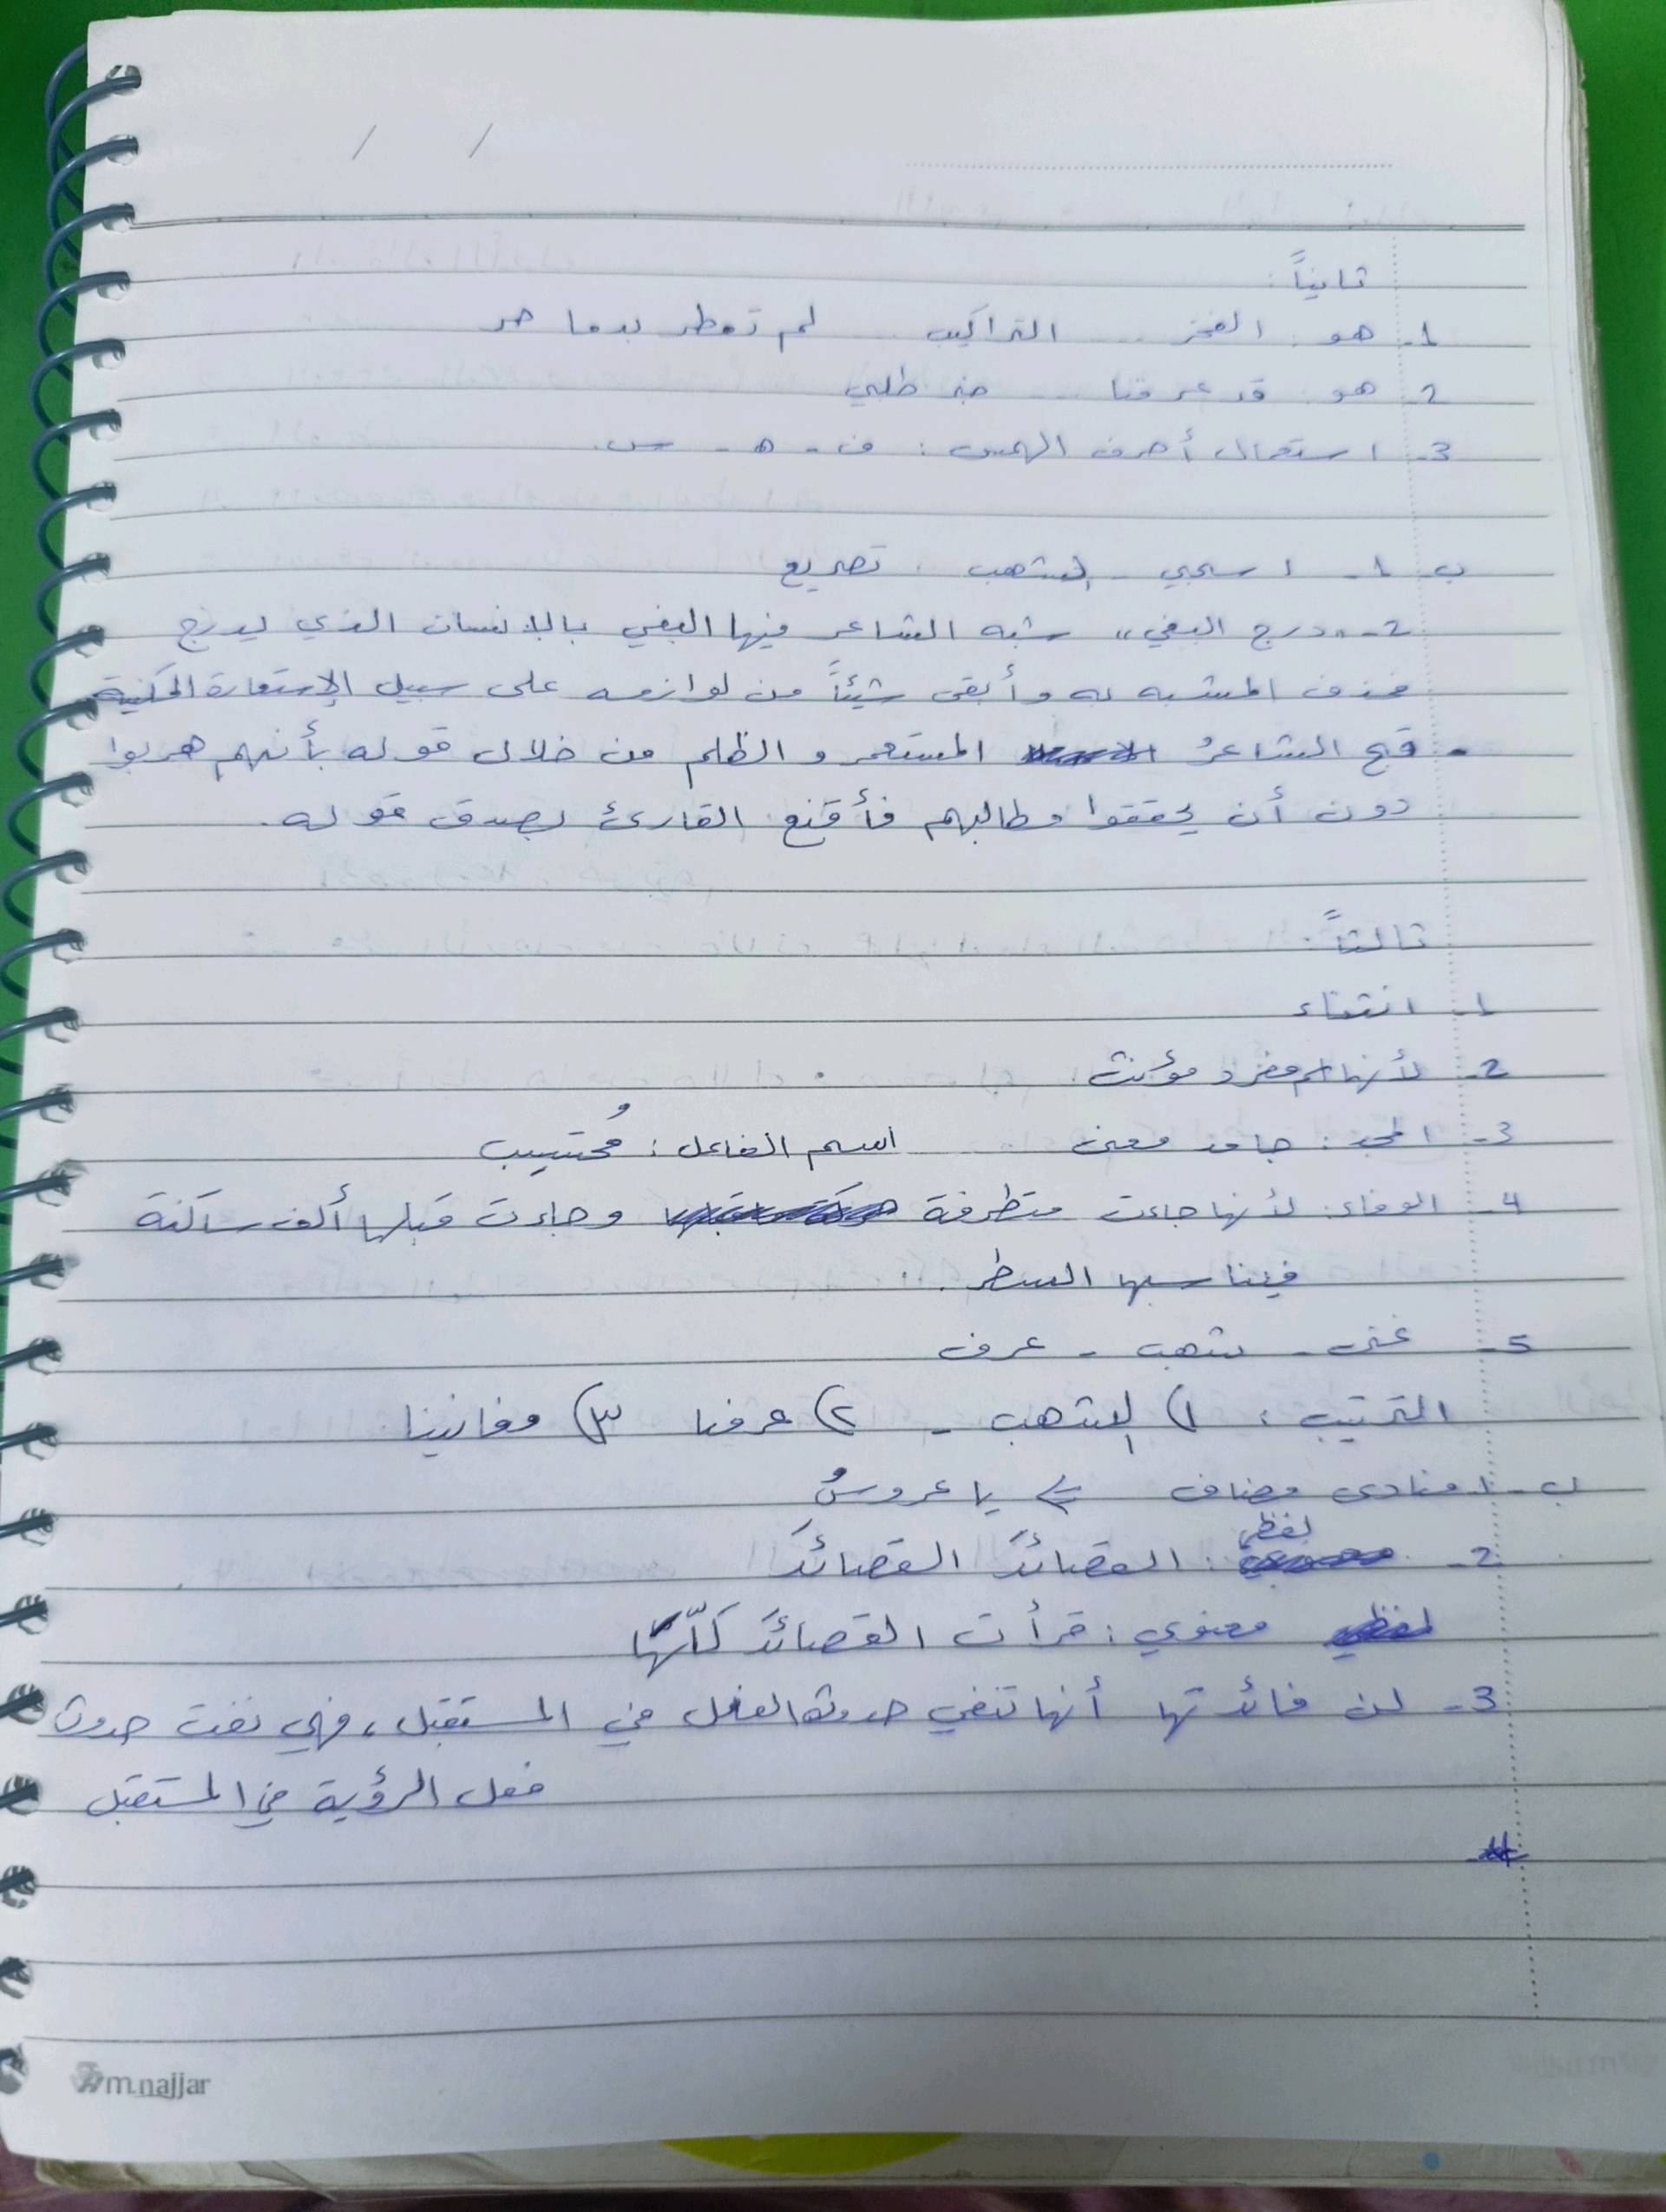 / /
ثانياً:
1- هو: الفخر ... التراكيب ... لم تعطر بدما حر
2- هو: قد عرفنا ... خبر طلبي
3- استعمال أحرف الهمس: ف - ه - س.
ب 1- اسحبي - الشهب: تصريع
2- "درج البغي" شبه الشاعر فيها البغي بالإنسان الذي يدرج
فحذف المشبه به وأبقى شيئاً من لوازمه على سبيل الإستعارة المكنية
- قبح الشاعرُ المستعمر و الظلم من خلال قوله بأنهم هربوا
دون أن يحققوا مطالبهم فأقنع القارئ بصدق قوله.
ثالثاً:
1- انتقاء
2- لأنها اسم مفرد مؤنث
3- المجد: جامد معنى ... اسم الفاعل: مُحتسِب
4- الوفاء: لأنها جاءت متطرفة وجاءت قبلها ألف ساكنة
فيناسبها السطر.
5- غني - شهب - عرف
الترتيب: 1) الشهب - 2) عرفنا 3) مغانينا
ب - 1 منادى مضاف ⇐ يا عروسُ
2- لفظي: القصائدَ القصائدَ
معنوي: قرأت القصائدَ كلّها
3- لن فائدتها أنها تنفي حدوث الفعل في المستقبل، فهي نفت حدوث
فعل الرؤية في المستقبل
m.najjar